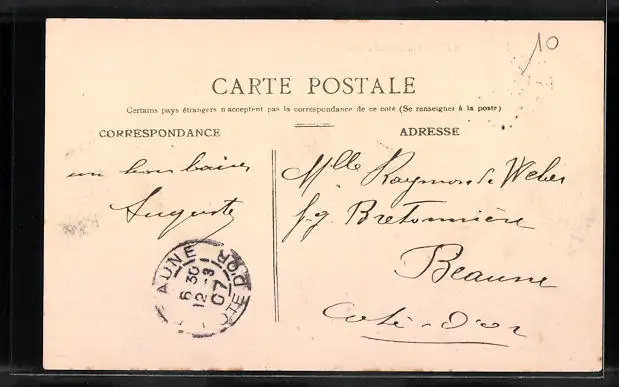 10
CARTE POSTALE
Certains pays étrangers n'acceptent pas la correspondance de ce coté (Se renseigner à la poste)
CORRESPONDANCE
ADRESSE
un bon baiser
Auguste
Mlle Raymonde Weber
fg. Bretonnière
Beaune
Côte-d'or
AUNE
6 30
12 -3
07
CÔTE D'OR